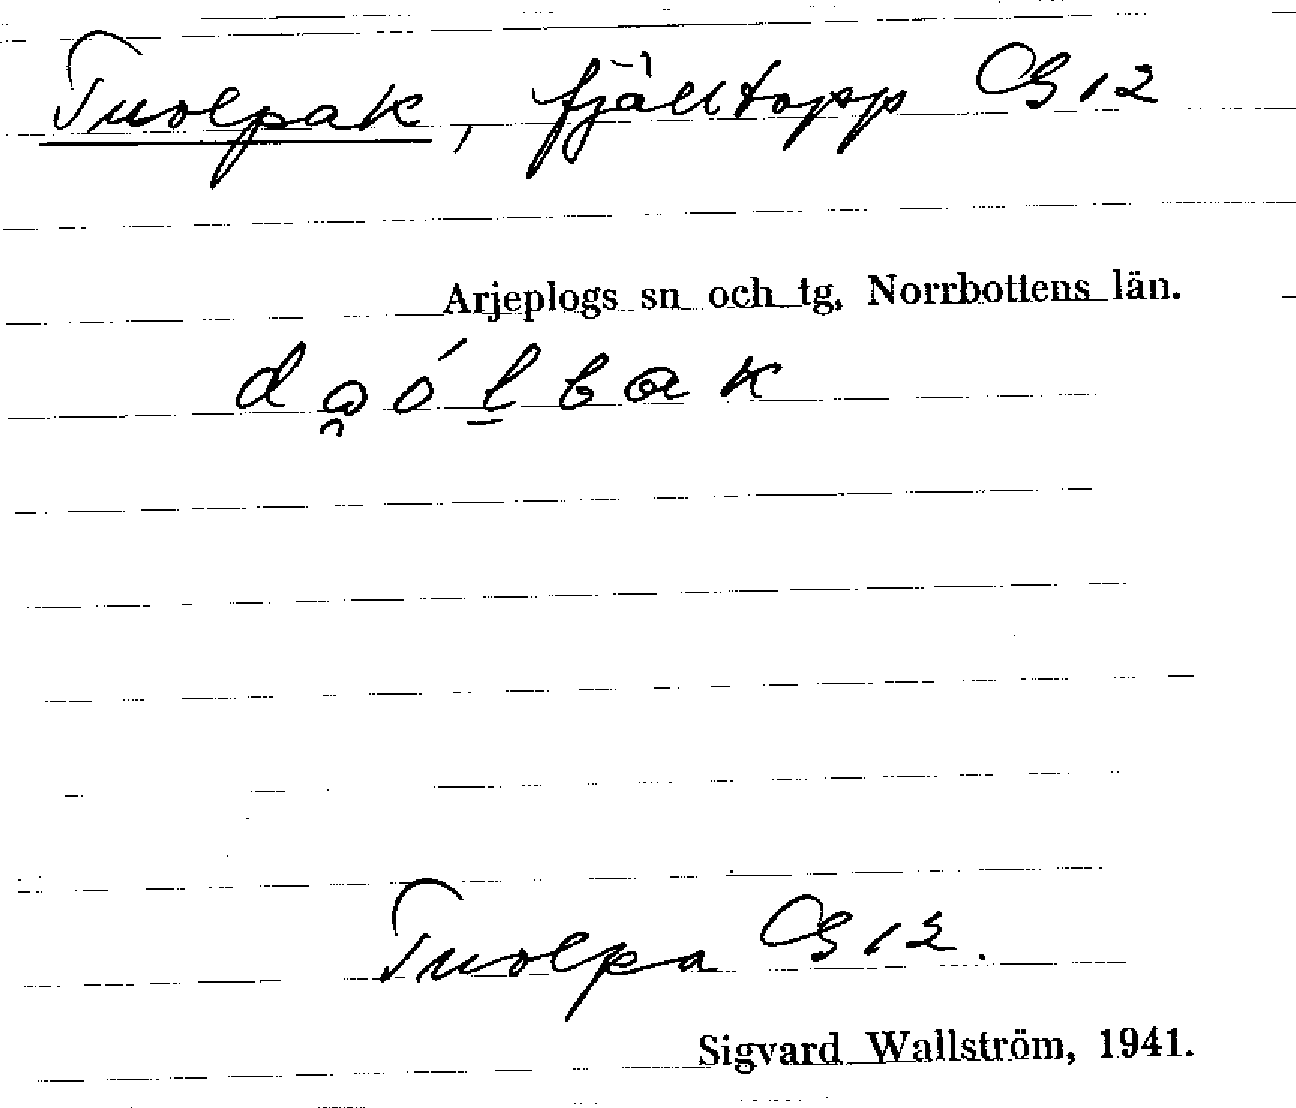 Tuolpak, fjälltopp CG 12
Arjeplogs sn och tg, Norrbottens län.
dɷ̯ól̲bɑk
Tuolpa CG 12.
Sigvard Wallström, 1941.